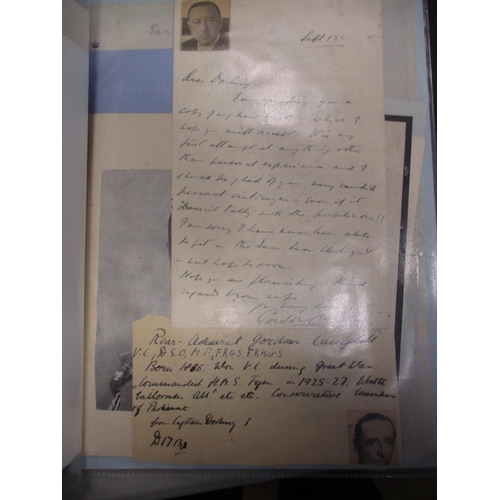 Sept 13th
Dear Dorling
I am sending you a
copy of my new book which I
hope you will accept. It is my
first attempt at anything other
than personal experience and I
should be glad of your very candid
personal criticism - even if it
doesn't tally with the publishers!!
I am sorry I have never been able
to get in the Seven Seas Club yet
- but hope to soon
Hope you are flourishing Kind
regards to your wife
Gordon
Rear-Admiral Gordon Campbell
V.C., D.S.O., M.P., F.R.G.S, F.R.Hist.S
Born 1886. Won V.C. during Great War.
Commanded H.M.S. Tiger in 1925-27. Wrote
"Sailormen All" etc etc. Conservative Member
of Parliament
for Captain Dorling